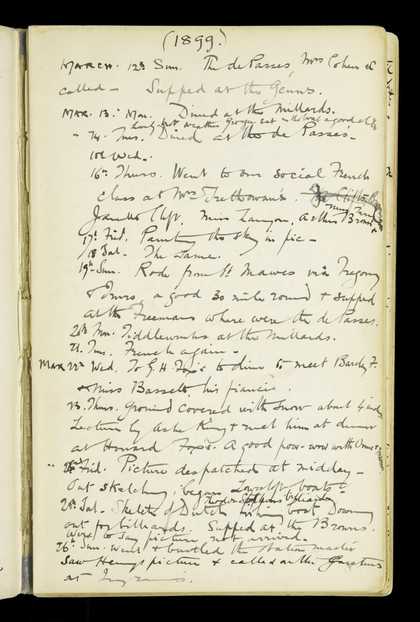 (1899)
MARCH. 12th Sun. The de Passes, Mrs Cohen &c
called — Supped at the Genns.
MAR. 13. Mon. Dined at the Millards.
lovely hot weather good
" 14. Tues. Dined at the de Passes.
Wed.
16th Thurs. Went to our social French
class at Mrs Trethowan's.
Miss Arthur Brown
17th Frid. Painting the sky in pic —
18 Sat. The same.
19th Sun. Rode from St Mawes via Tregony
& Truro, a good 30 mile round & supped
at the Freemans where were the de Passes.
20th Mon. Tiddlewinks at the Millards.
21. Tues. French again —
MAR 22nd Wed. To G. H. Fox's to dine to meet Barclay F.
& Miss Bassett, his fiancée.
23. Thurs. Ground covered with snow about 4 ins
Lecture by Ashe King & met him at dinner
at Howard Fox's. A good pow-wow with
" Frid. Picture despatched at midday —
Out sketching, began Lowestoft boats
25th Sat. Sketch of Dutch fishing boat Downing
out for billiards. Supped at the Browns.
Wired to say picture not arrived.
26th Sun. Went & bustled the station master
Saw Hemy's picture & called on the Gaskins
at Ingram's.